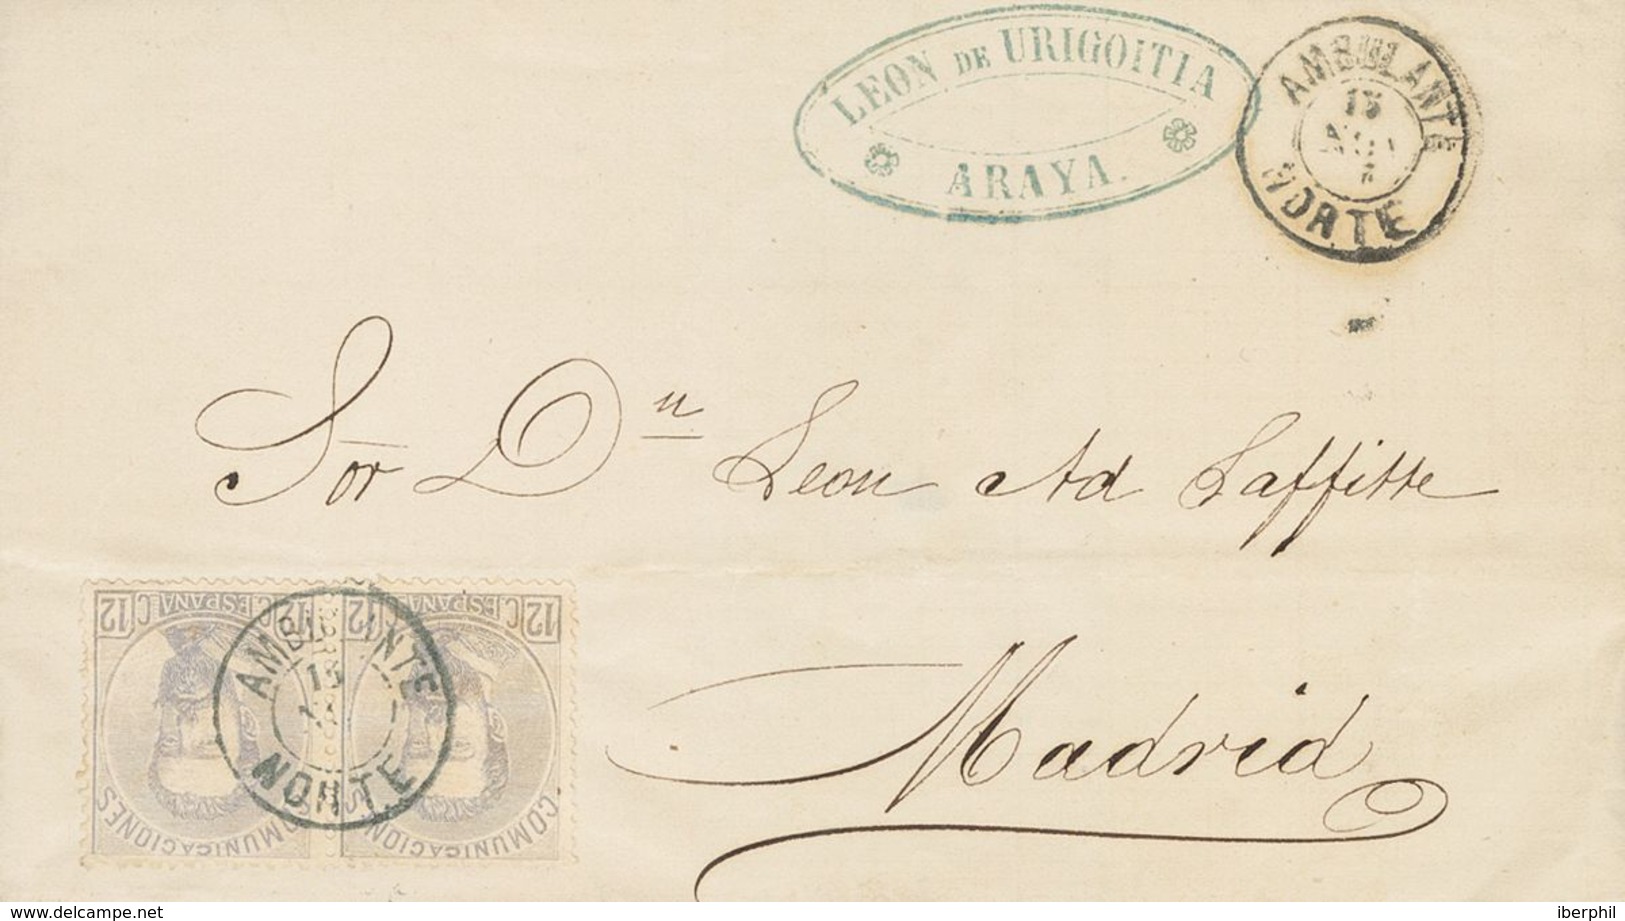 LEON DE URIGOITIA
ARAYA.
AMBULANTE
15
NORTE
Sor Dn Leon Ad Laffitte
Madrid
12 C. ESPAÑA 12
12 C. ESPAÑA 12
COMUNICACIONES
COMUNICACIONES
AMBULANTE
15
NORTE
www.delcampe.net
iberphil